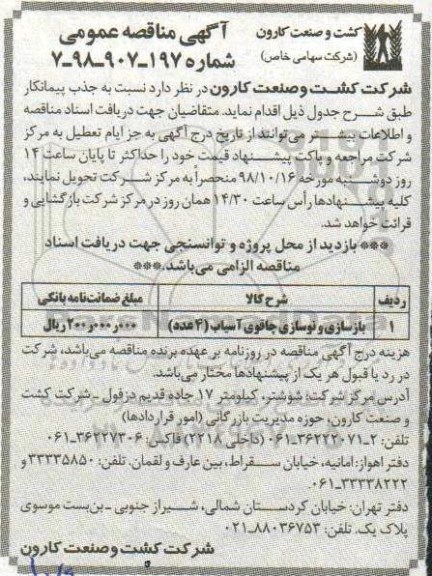 کشت و صنعت کارون
(شرکت سهامی خاص)
آگهی مناقصه عمومی
شماره ۱۹۷-۹۰۷-۹۸-۷
شرکت کشت و صنعت کارون در نظر دارد نسبت به جذب پیمانکار
طبق شرح جدول ذیل اقدام نماید. متقاضیان جهت دریافت اسناد مناقصه
و اطلاعات بیشتر می‌توانند از تاریخ درج آگهی به جز ایام تعطیل به مرکز
شرکت مراجعه و پاکت پیشنهاد قیمت خود را حداکثر تا پایان ساعت ۱۴
روز دوشنبه مورخه ۹۸/۱۰/۱۶ منحصراً به مرکز شرکت تحویل نمایند،
کلیه پیشنهادها رأس ساعت ۱۴/۳۰ همان روز در مرکز شرکت بازگشایی و
قرائت خواهد شد.
*** بازدید از محل پروژه و توانسنجی جهت دریافت اسناد
مناقصه الزامی می‌باشد.***
ردیف شرح کالا مبلغ ضمانت‌نامه بانکی
۱ بازسازی و نوسازی چاقوی آسیاب (۴ عدد) ۲۰۰,۰۰۰,۰۰۰ ریال
هزینه درج آگهی مناقصه در روزنامه بر عهده برنده مناقصه می‌باشد، شرکت
در رد یا قبول هر یک از پیشنهادها مختار می‌باشد.
آدرس مرکز شرکت: شوشتر، کیلومتر ۱۷ جاده قدیم دزفول - شرکت کشت
و صنعت کارون، حوزه مدیریت بازرگانی (امور قراردادها)
تلفن: ۲-۳۶۲۲۲۰۷۱-۰۶۱ (داخلی ۲۲۱۸) فاکس: ۳۶۲۲۷۳۰۶-۰۶۱
دفتر اهواز: امانیه، خیابان سقراط، بین عارف و لقمان. تلفن: ۳۳۳۳۵۸۵۰ و
۳۳۳۳۸۲۲۲-۰۶۱
دفتر تهران: خیابان کردستان شمالی، شیراز جنوبی - بن‌بست موسوی
پلاک یک. تلفن: ۸۸۰۳۶۷۵۳-۰۲۱
شرکت کشت و صنعت کارون